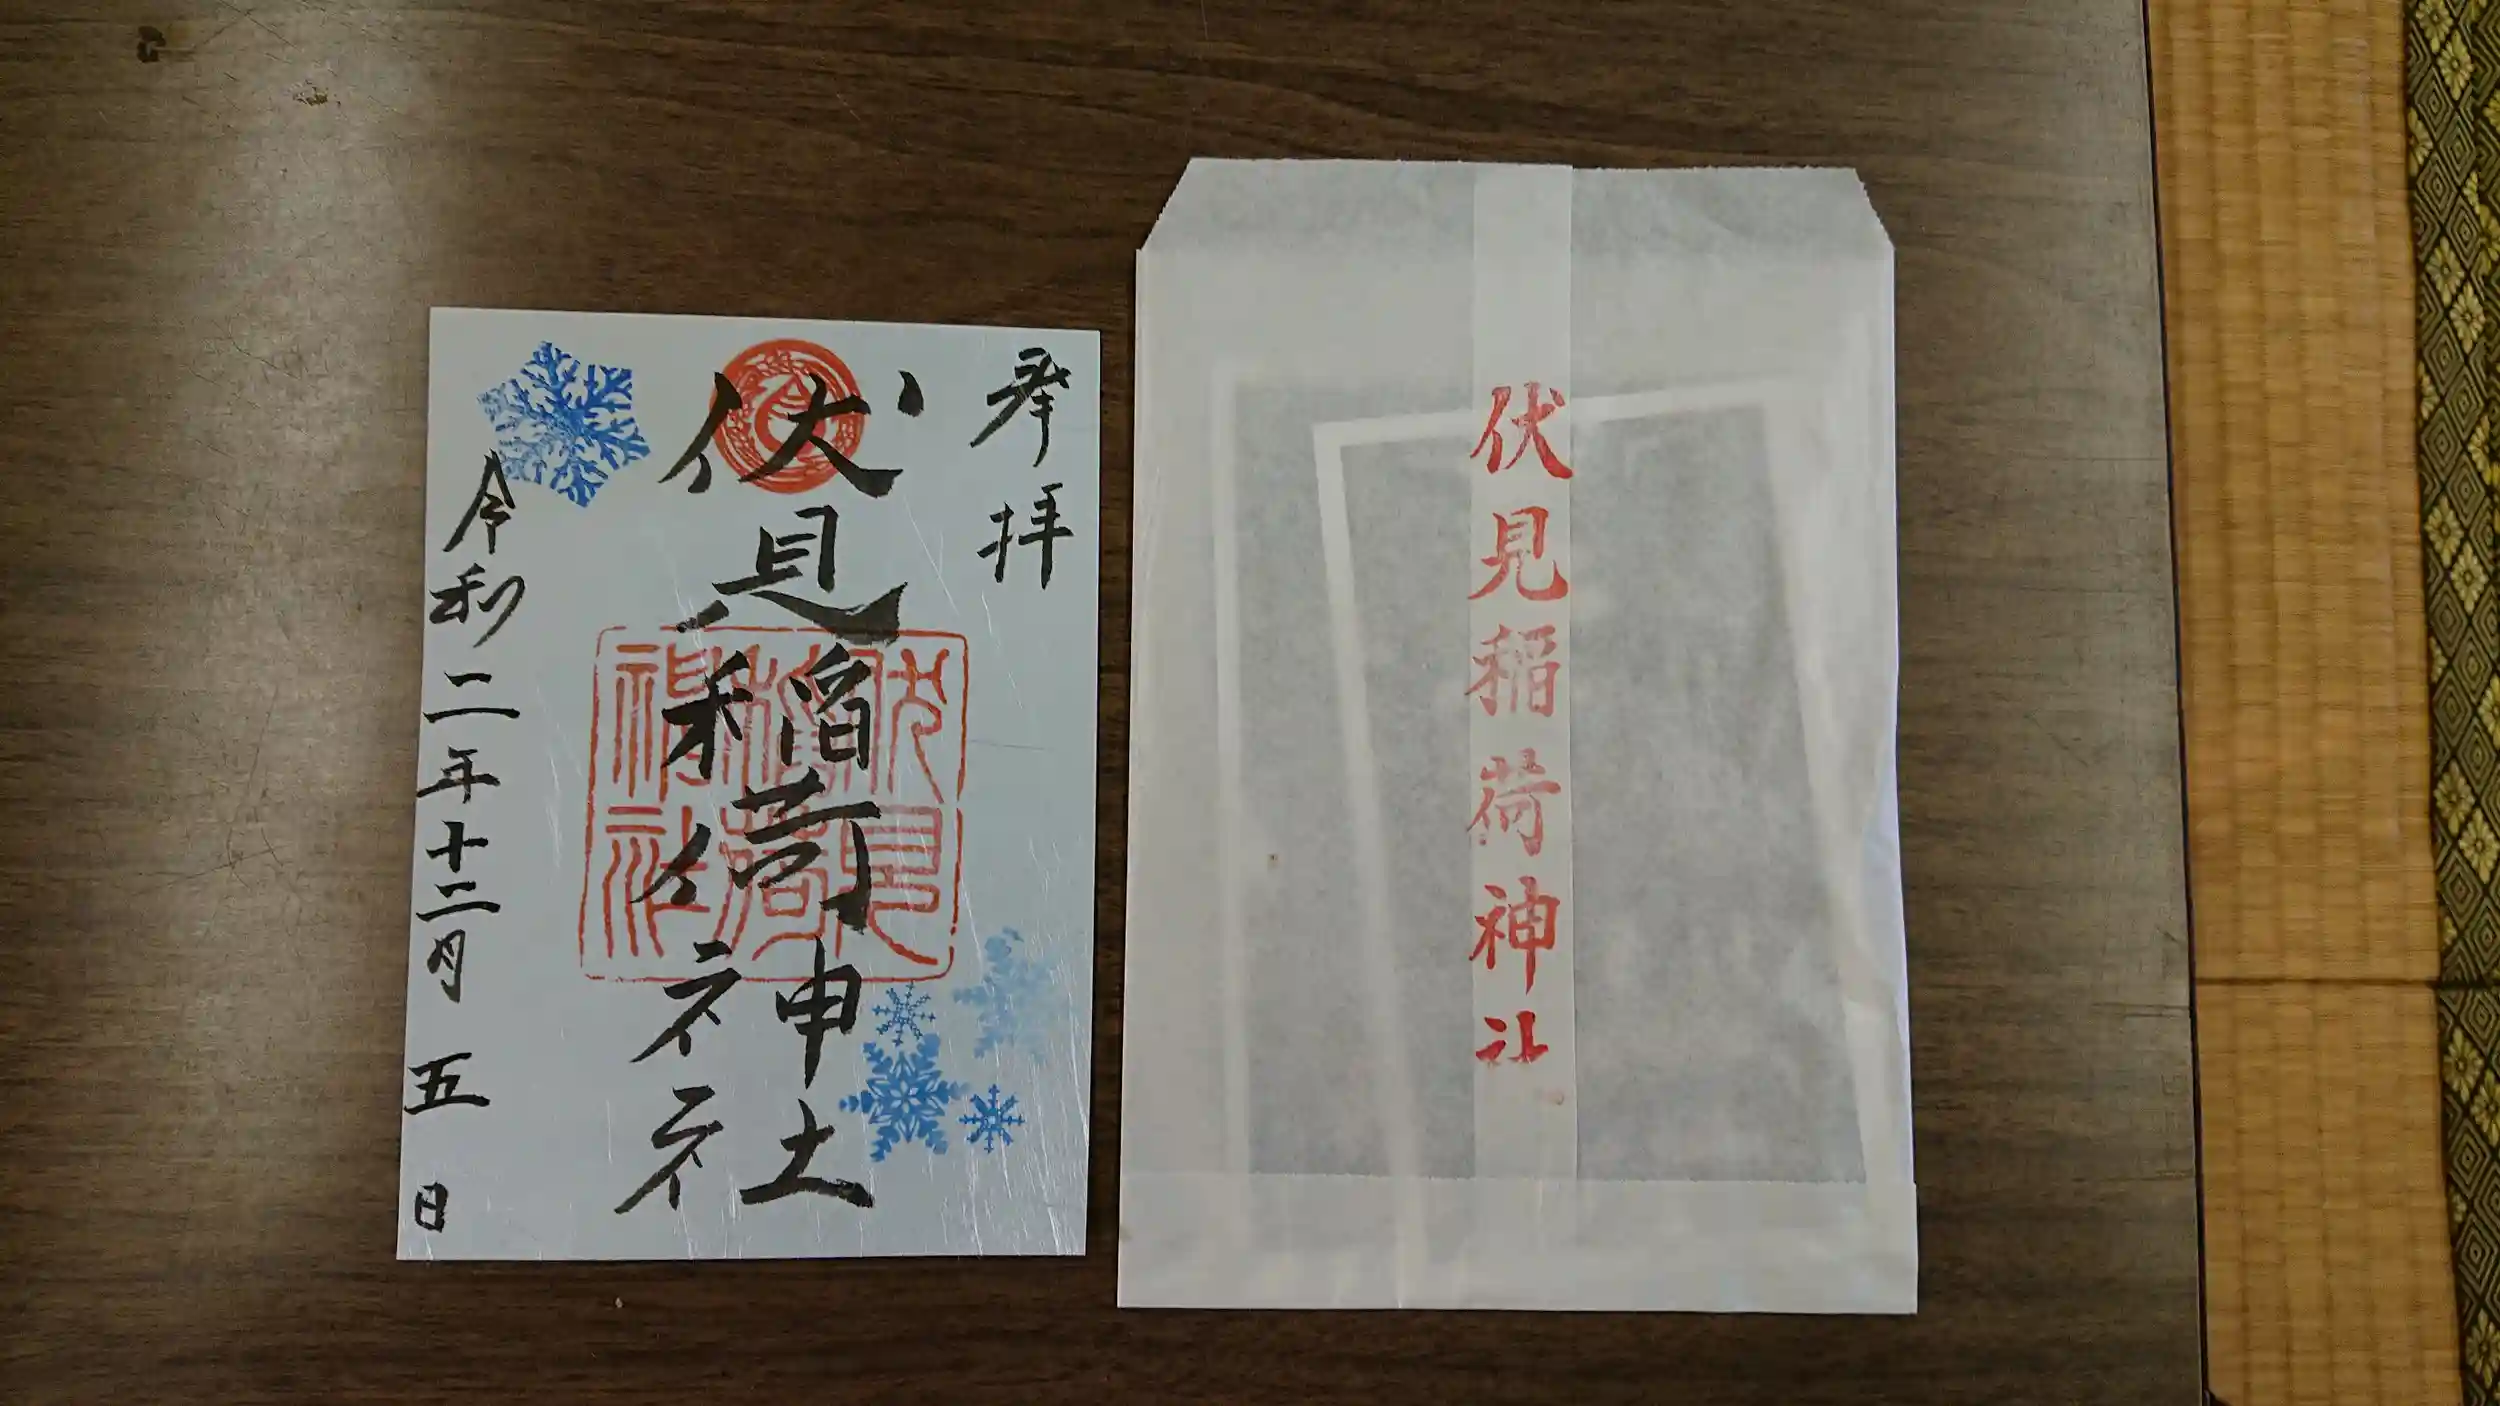 奉拝
伏見稲荷神社
令和二年十二月五日
伏見稲荷神社
伏見稲荷神社